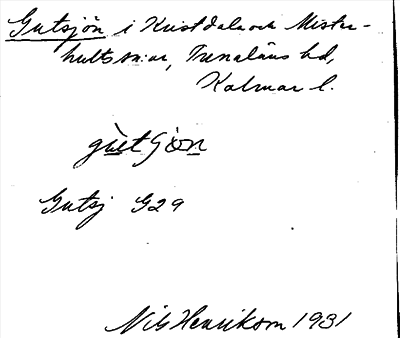 Gutsjön i Kristdala och Mister-
hults snar, Tunaläns hd,
Kalmar l.
gùtʃön
Gutsj G29
Nils Henrikson 1931